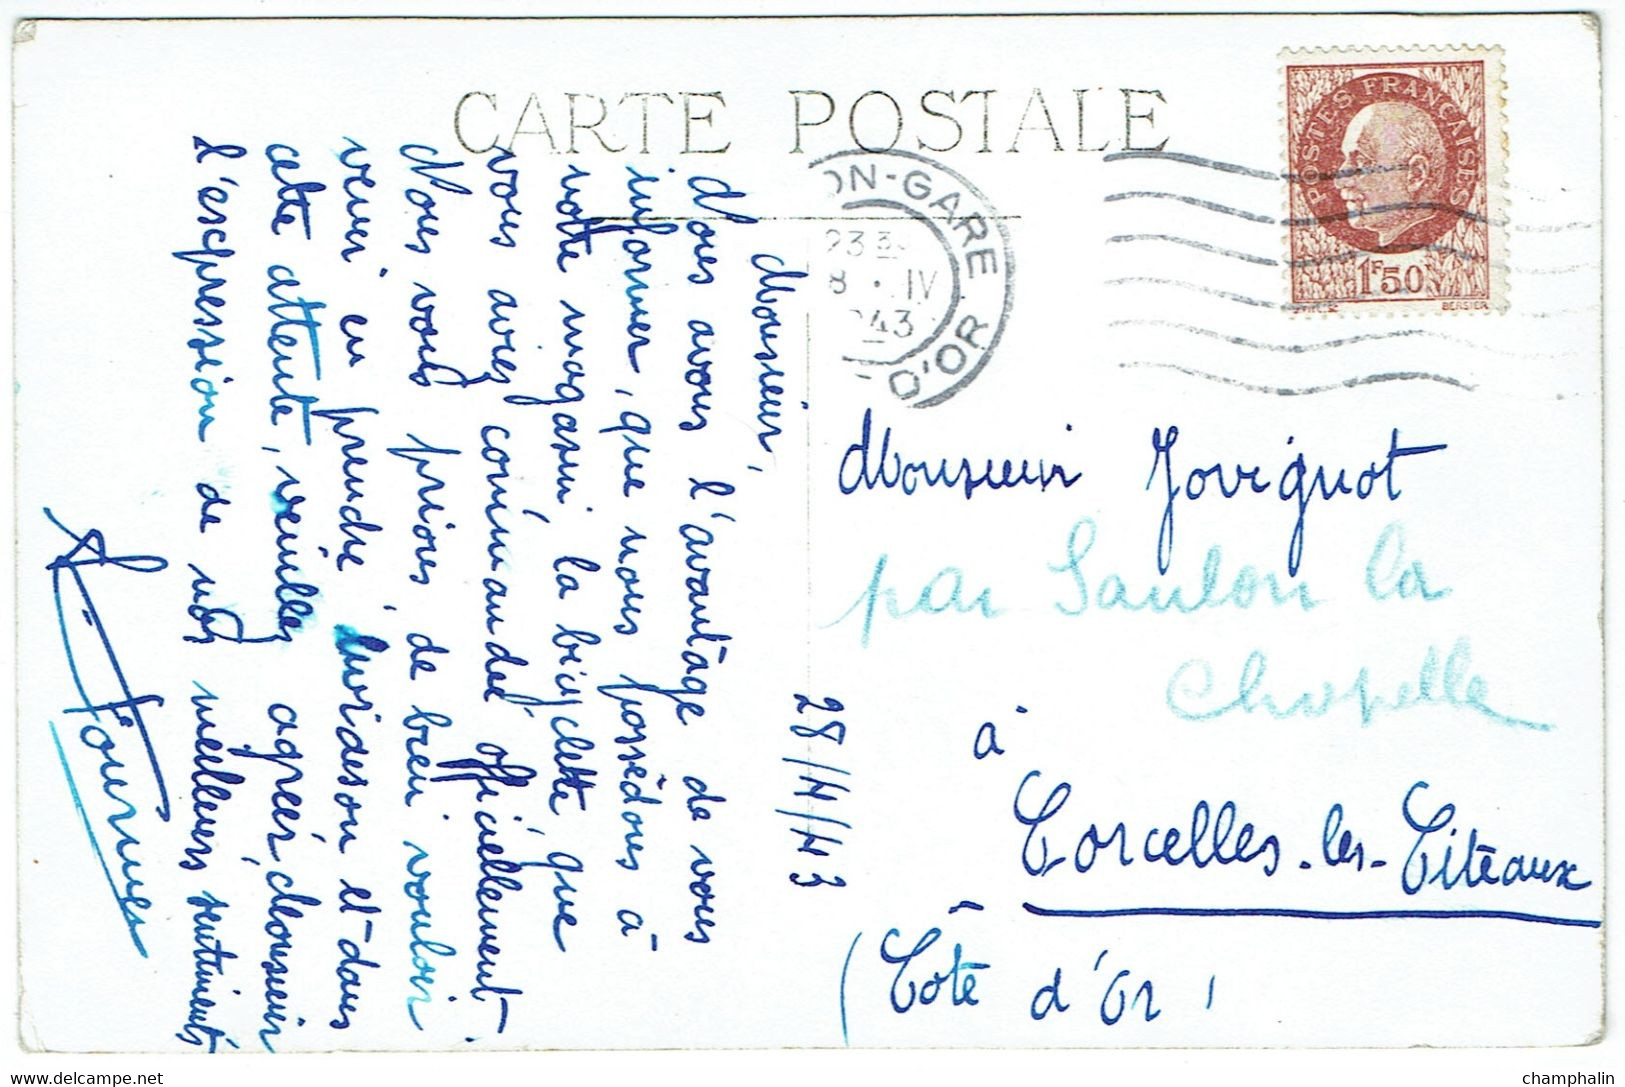 CARTE POSTALE
POSTES FRANÇAISES
1F50
BERSIER
ON-GARE
23 3
8 · IV
943
D'OR
28/4/43
Monsieur,
Nous avons l'avantage de vous
informer, que nous possédons à
notre magasin, la bicyclette que
vous aviez commandé officiellement
Nous vous prions, de bien vouloir
venir en prendre livraison et dans
cette attente, veuillez agréer, Monsieur
l'expression de nos meilleurs sentiments
Monsieur Jovignot
par Saulon la
Chapelle
à
Corcelles-les-Citeaux
(Côte d'Or)
champhalin
delcampe.net